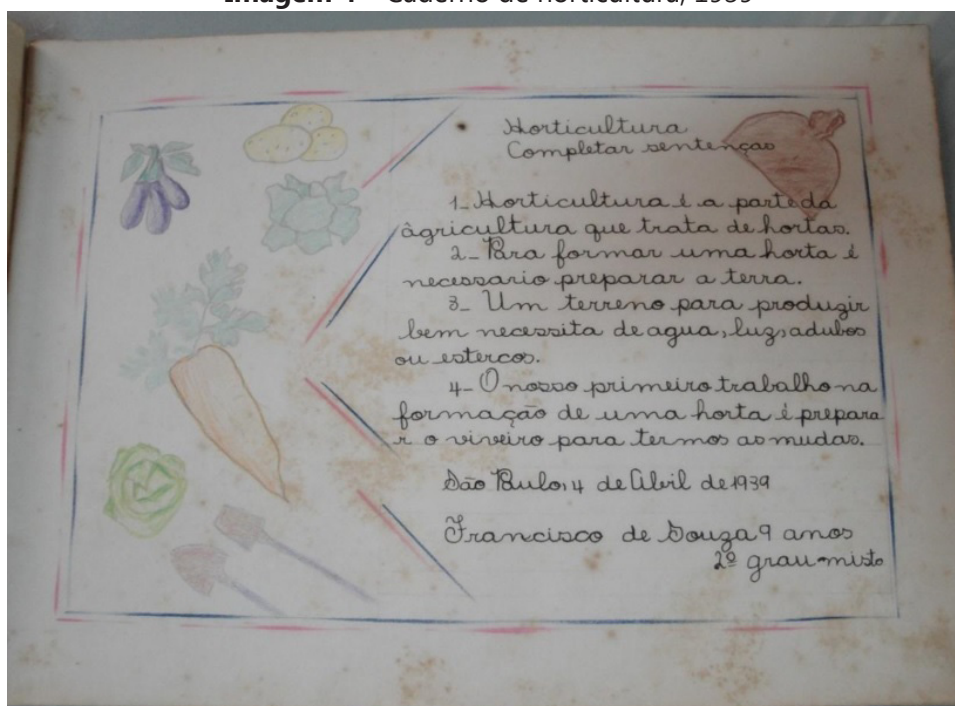 Imagem 4 – Caderno de horticultura, 1939
Horticultura
Completar sentenças
1_ Horticultura é a parte da
âgricultura que trata de hortas.
2_ Para formar uma horta é
necessario preparar a terra.
3_ Um terreno para produzir
bem necessita de agua, luz, adubos
ou estercos.
4_ O nosso primeiro trabalho na
formação de uma horta é prepara
r o viveiro para termos as mudas.
São Paulo, 4 de Abril de 1939
Francisco de Souza 9 anos
2º grau-misto